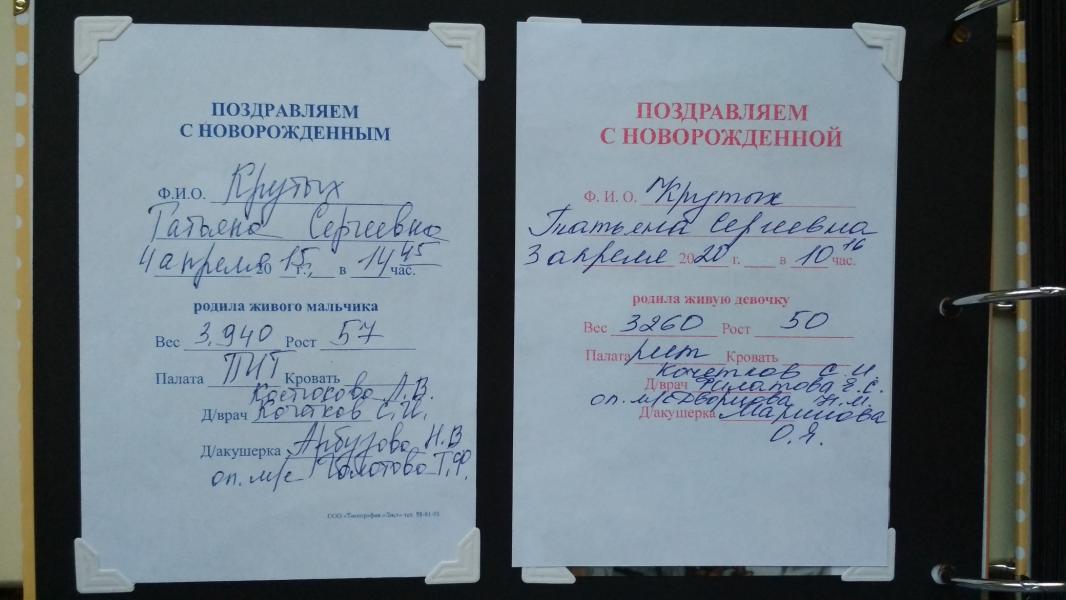 ПОЗДРАВЛЯЕМ
С НОВОРОЖДЕННЫМ
Ф.И.О. Крутых
Татьяна Сергеевна
4 апреля 20 15 г., в 14 45 час.
родила живого мальчика
Вес 3.940 Рост 57
Палата ПИТ Кровать
Костюкова Л.В.
Д/врач Кочетков С.И.
Д/акушерка Арбузова Н.В
оп. м/с Молотова Т.Ф.
ООО «Типография «Лист» тел.
ПОЗДРАВЛЯЕМ
С НОВОРОЖДЕННОЙ
Ф. И. О. Крутых
Татьяна Сергеевна
3 апреля 2020 г. в 10 16 час.
родила живую девочку
Вес 3260 Рост 50
Палата Кровать
Кочетков С.И.
Д/врач Филатова Е.С.
оп. м/с Дворцова Н.М.
Д/акушерка Маринова
О.Я.